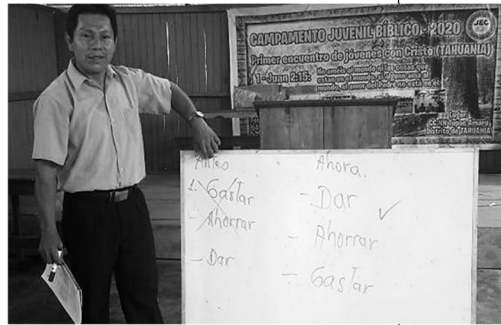 CAMPAMENTO JUVENIL BÍBLICO - 2020
JEC
Primer encuentro de jóvenes con Cristo (TAHUANIA)
1 - Juan 2:15:
No améis al mundo, ni las cosas que
están en el mundo. Si alguno ama al
mundo, el amor del Padre no está en él
Lugar:
CC.NN Tupac Amaru,
Distrito de TAHUANIA
Antes
1. Gastar
- Ahorrar
- Dar
Ahora.
- Dar ✓
- Ahorrar
- Gastar